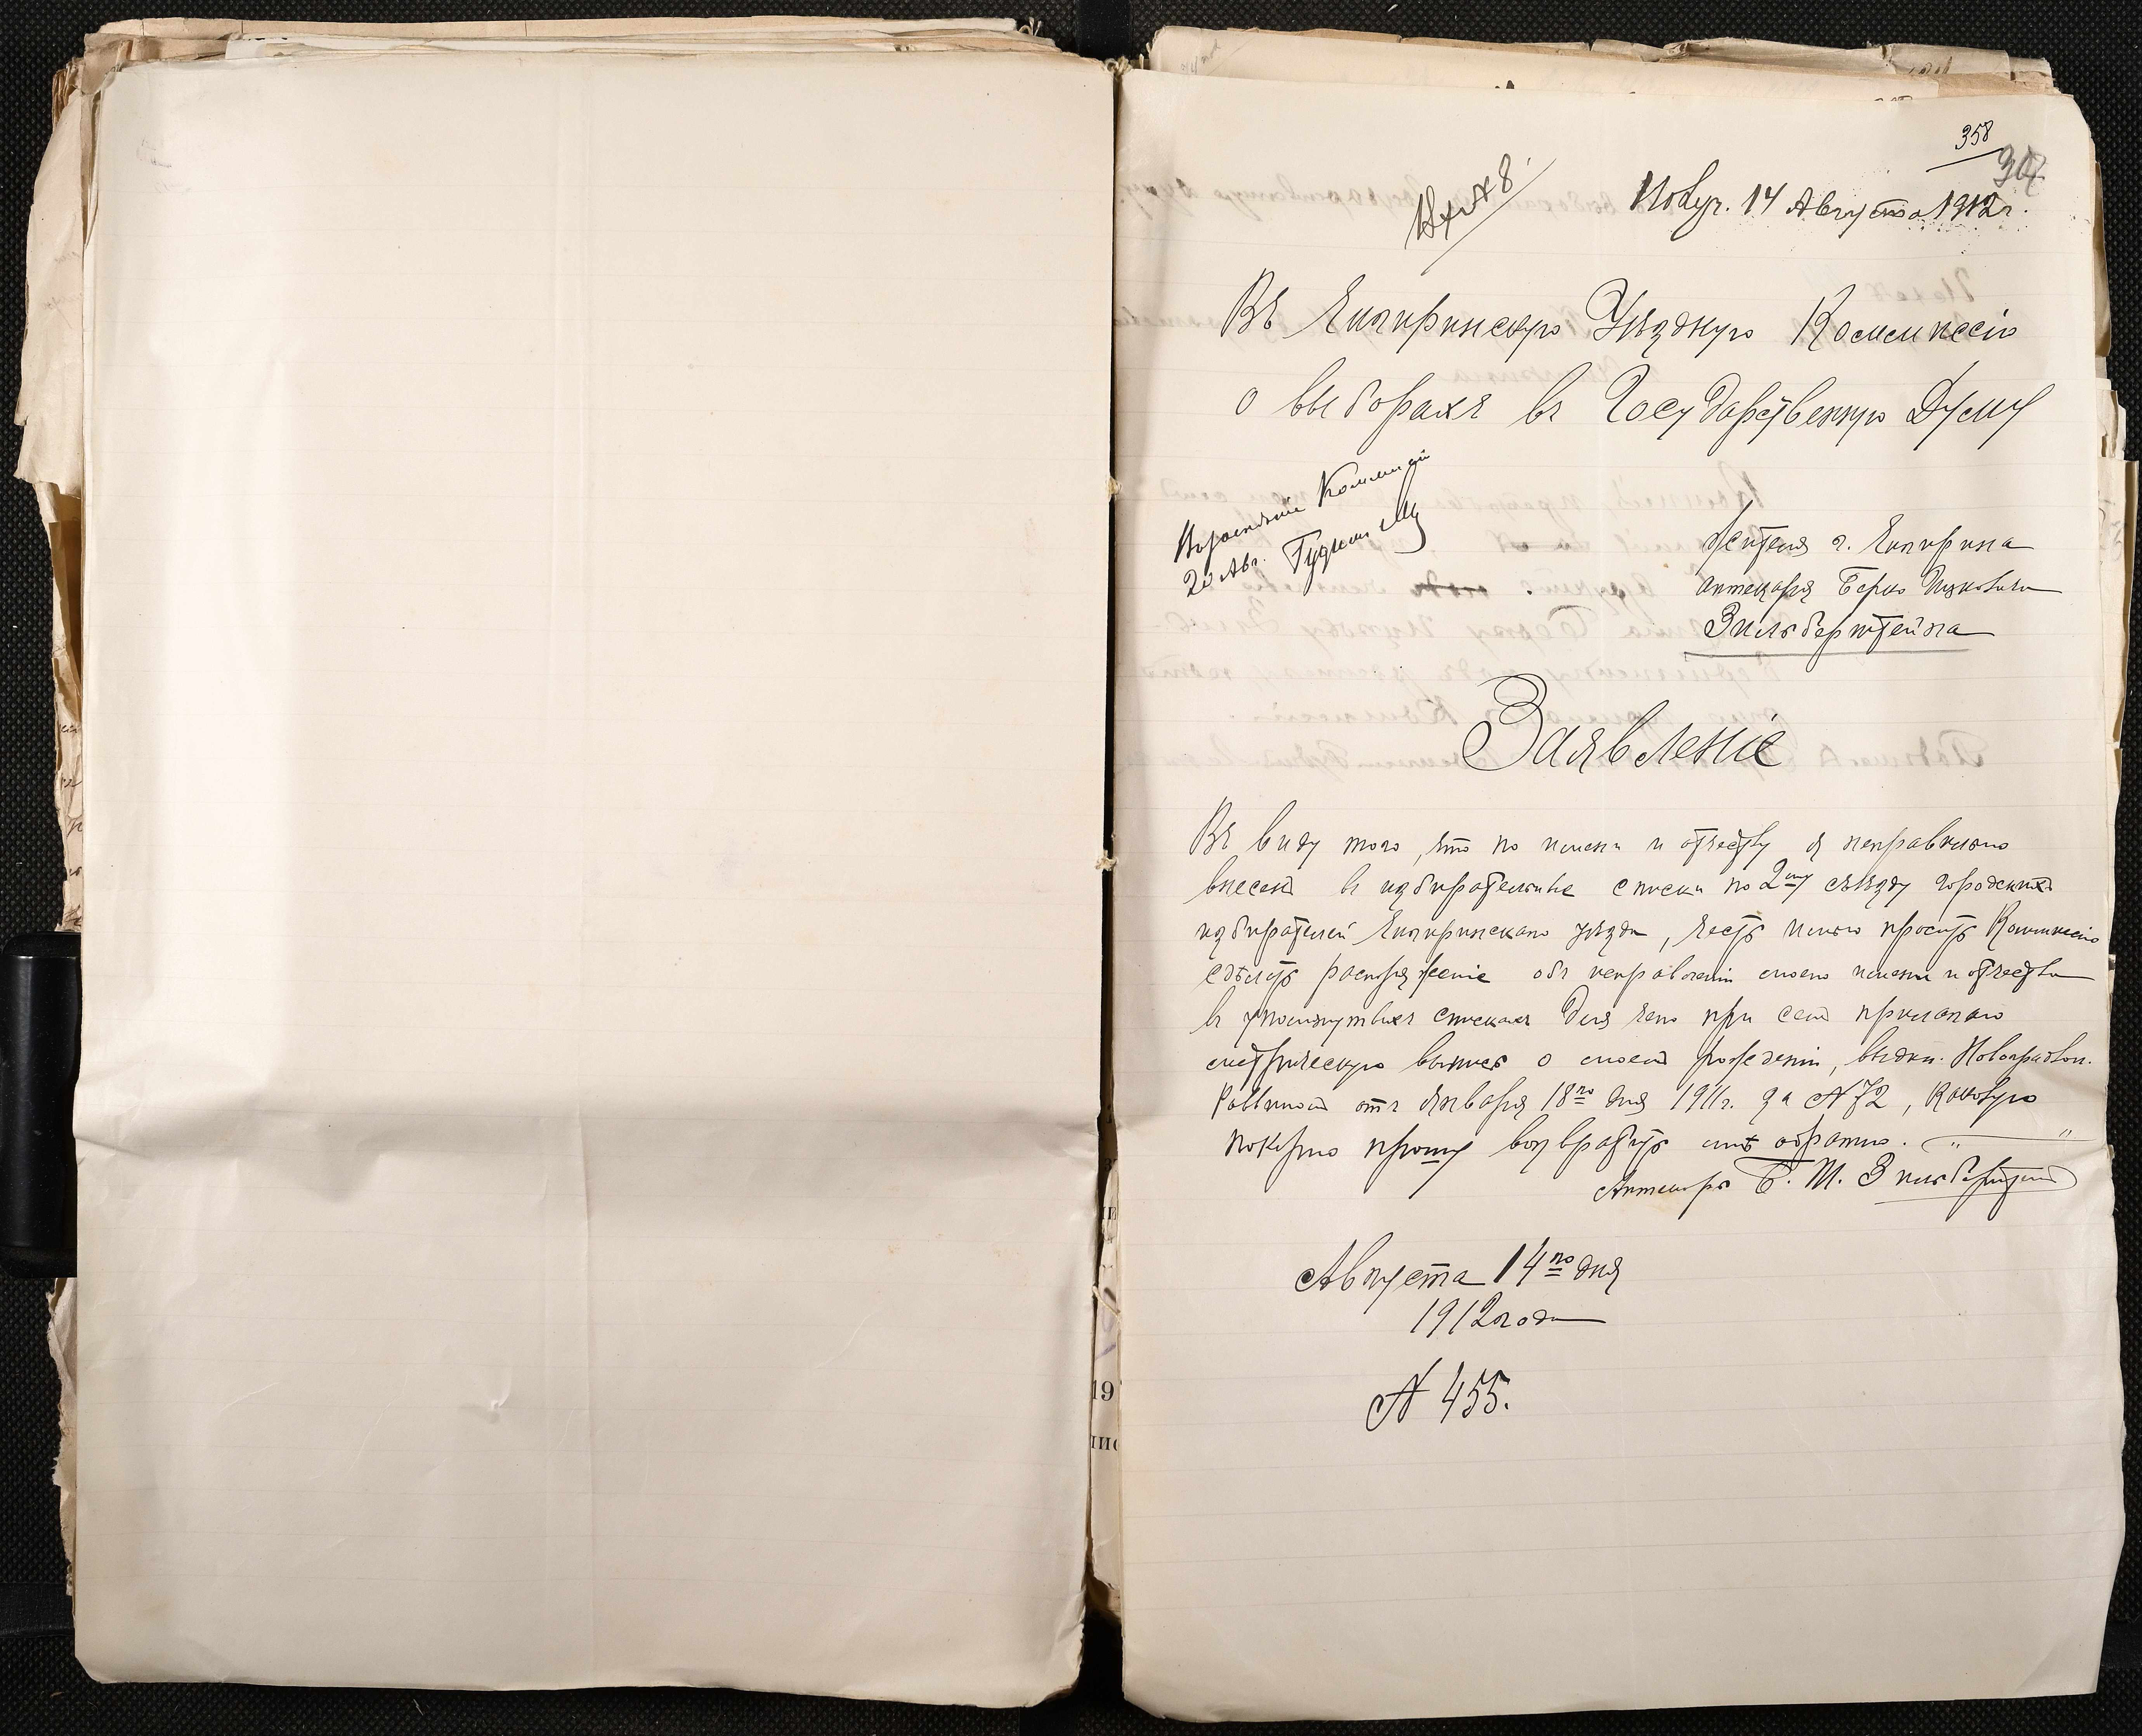 358
307
Вх. № 8
Получ. 14 Августа 1912 г.
Въ Чигиринскую Уѣздную Коммиссію
о выборахъ въ Государственную Думу
20 Авг.
Жителя г. Чигирина
аптекаря Берко Ицковича
Зильберштейна
Заявленіе
Въ виду того, что по имени и отчеству я неправильно
внесенъ въ избирательные списки по 2му съѣзду городскихъ
избирателей Чигиринскаго уѣзда, честь имѣю просить Коммиссію
сдѣлать распоряженіе объ исправленіи моего имени и отчества
въ упомянутыхъ спискахъ для чего при семъ прилагаю
метрическую выпись о моемъ рожденіи, выдан.
Раввиномъ отъ Января 18го дня 1911 г. за № 72, каковую
покорно прошу возвратить мнѣ обратно.
Аптекарь Б. И. Зильберштейнъ
Августа 14го дня
1912 года
№ 455.